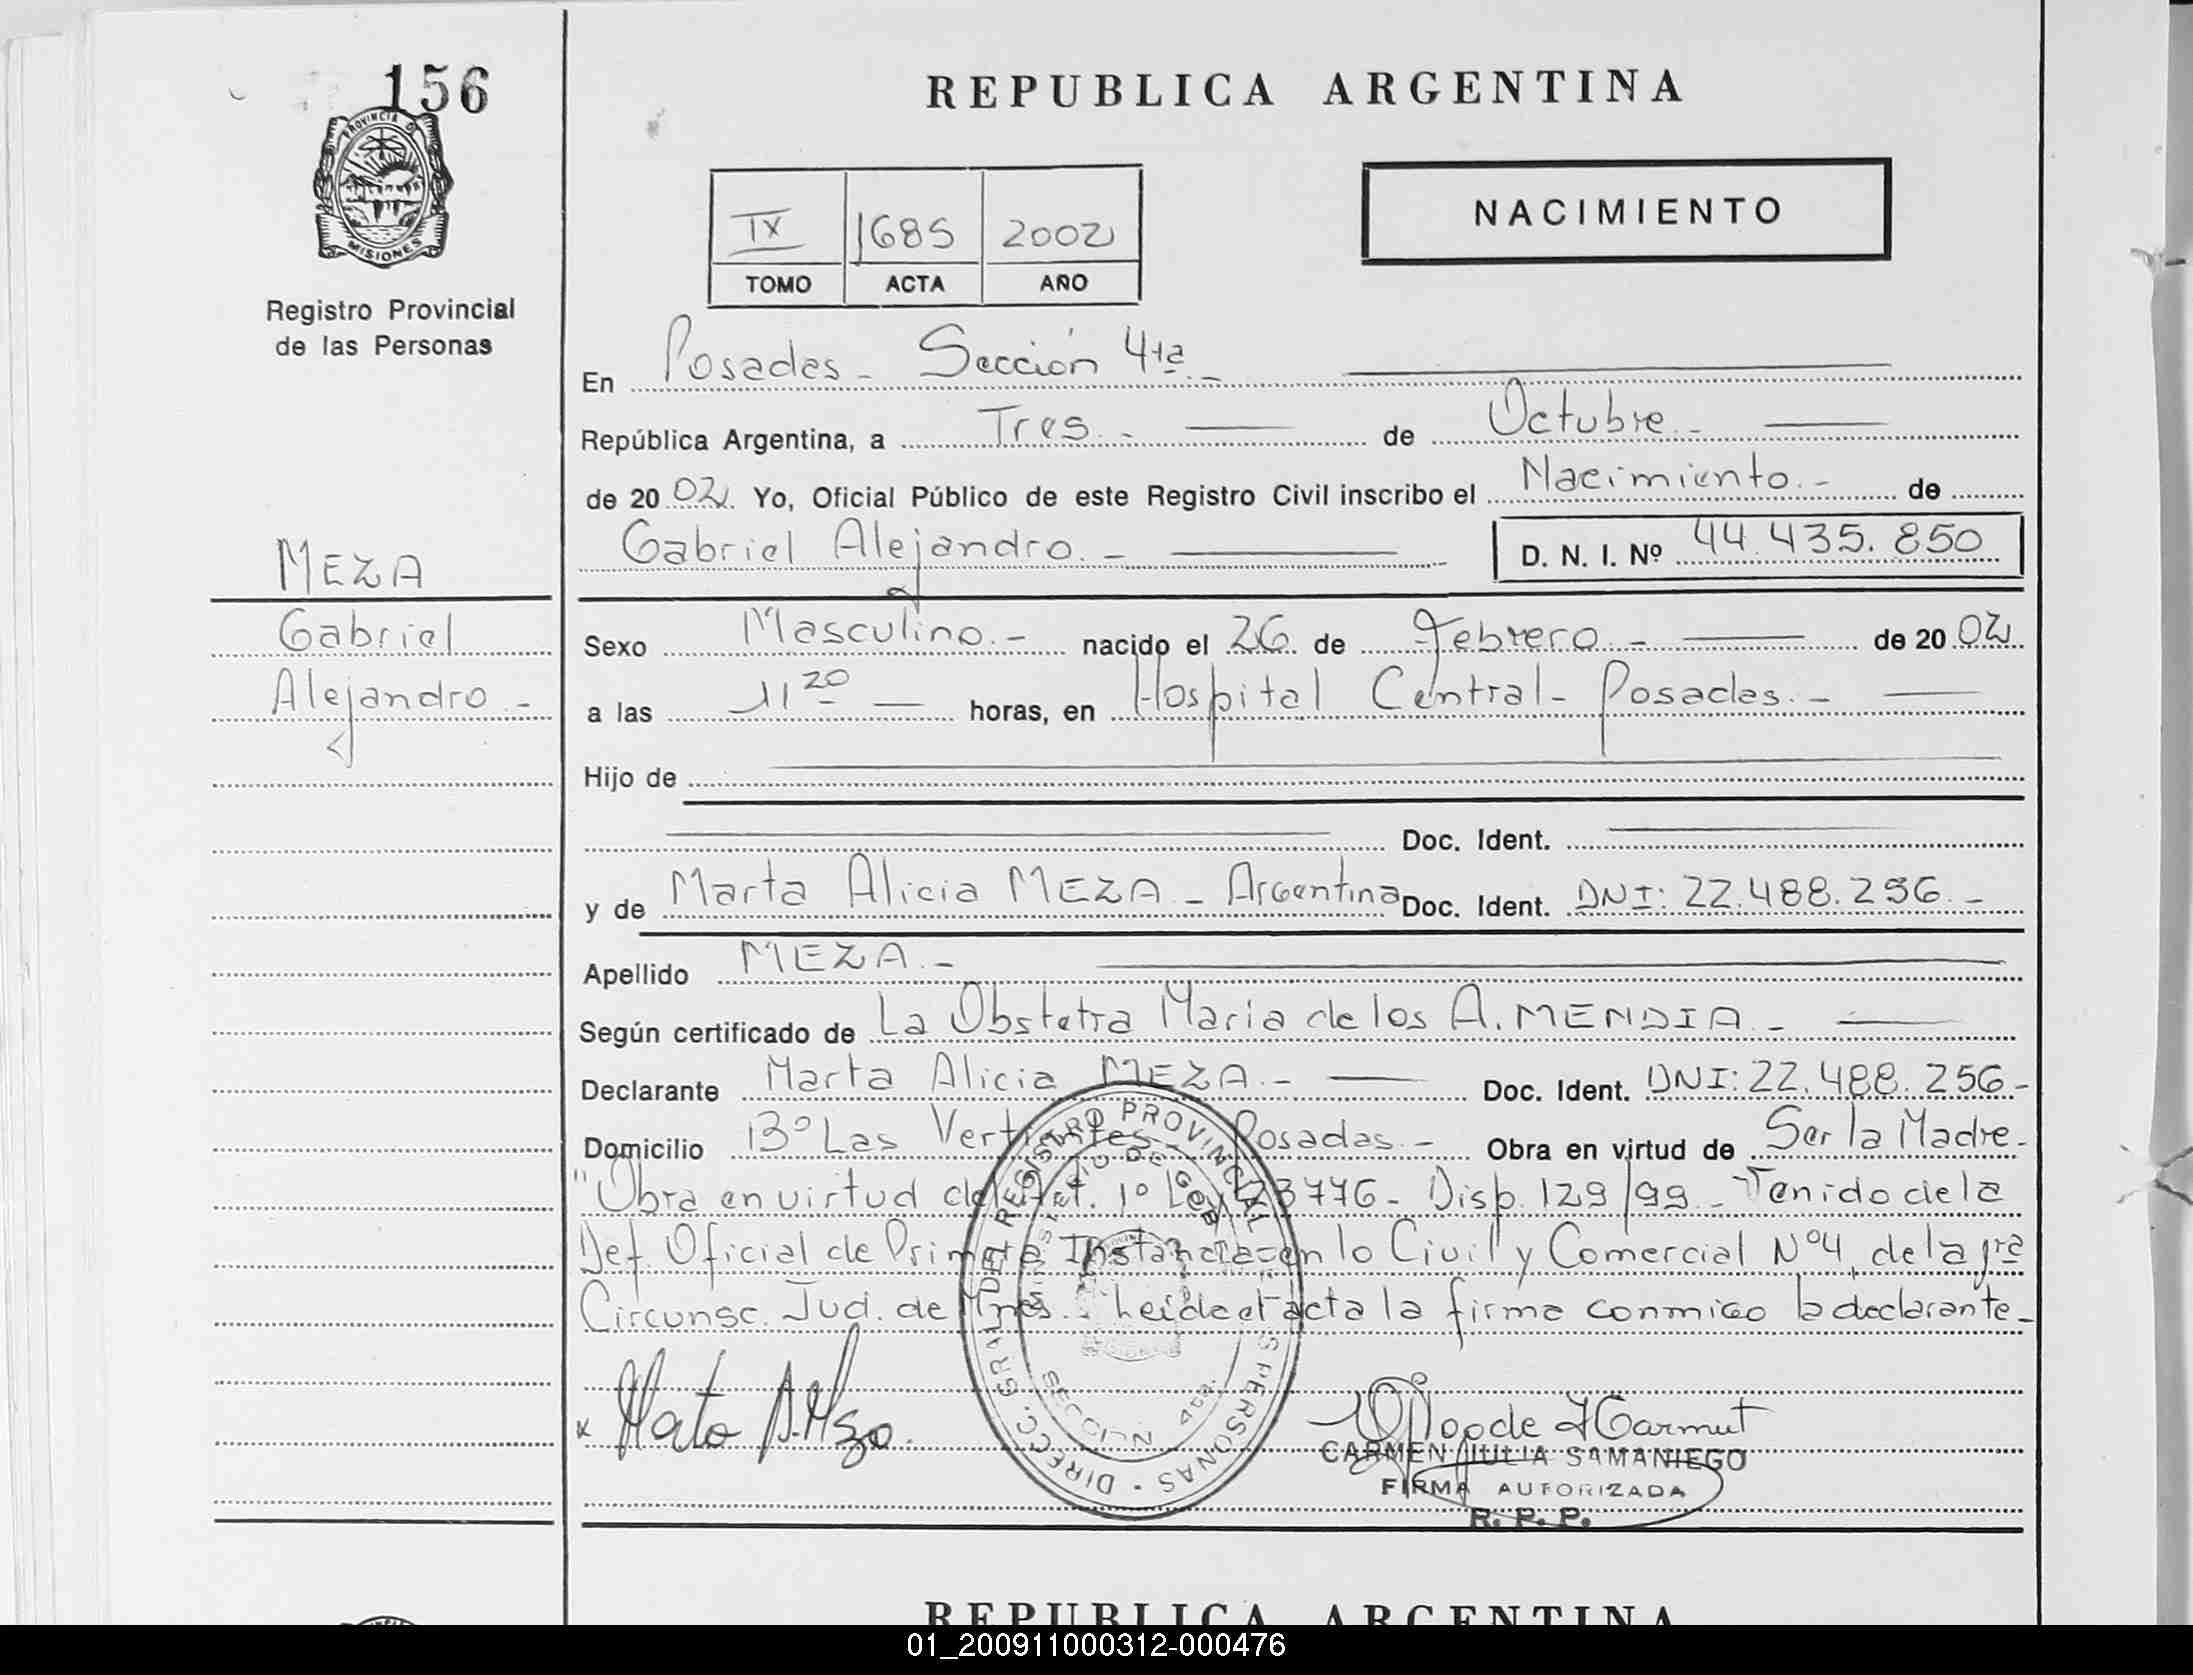 156
PROVINCIA DE
MISIONES
Registro Provincial
de las Personas
MEZA
Gabriel
Alejandro.-
REPUBLICA ARGENTINA
IX 1685 2002
TOMO ACTA AÑO
NACIMIENTO
En Posadas - Sección 4ta.-
República Argentina, a Tres.- de Octubre.-
de 20 02. Yo, Oficial Público de este Registro Civil inscribo el Nacimiento.- de
Gabriel Alejandro.- D. N. I. Nº 44.435.850
Sexo Masculino.- nacido el 26 de Febrero.- de 20 02
a las 11 20 - horas, en Hospital Central - Posadas.-
Hijo de
Doc. Ident.
y de Marta Alicia MEZA - Argentina Doc. Ident. DNI: 22.488.256.-
Apellido MEZA.-
Según certificado de La Obstetra Maria de los A. MENDIA.-
Declarante Marta Alicia MEZA.- Doc. Ident. DNI: 22.488.256-
Domicilio Bº Las Vertientes - Posadas.- Obra en virtud de Ser la Madre.-
"Obra en virtud del Art. 1º Ley 23776 - Disp. 129/99 - Tenido de la
Def. Oficial de Primera Instancia en lo Civil y Comercial Nº 4, de la 1ra
Circunsc. Jud. de Mnes. - Leida el acta la firma conmigo la declarante.-
DIRECC. GRAL DEL REGISTRO PROVINCIAL PERSONAS
SECCION 4ta.
CARMEN JULIA SAMANIEGO
FIRMA AUTORIZADA
R. P. P.
REPUBLICA ARGENTINA
01_200911000312-000476